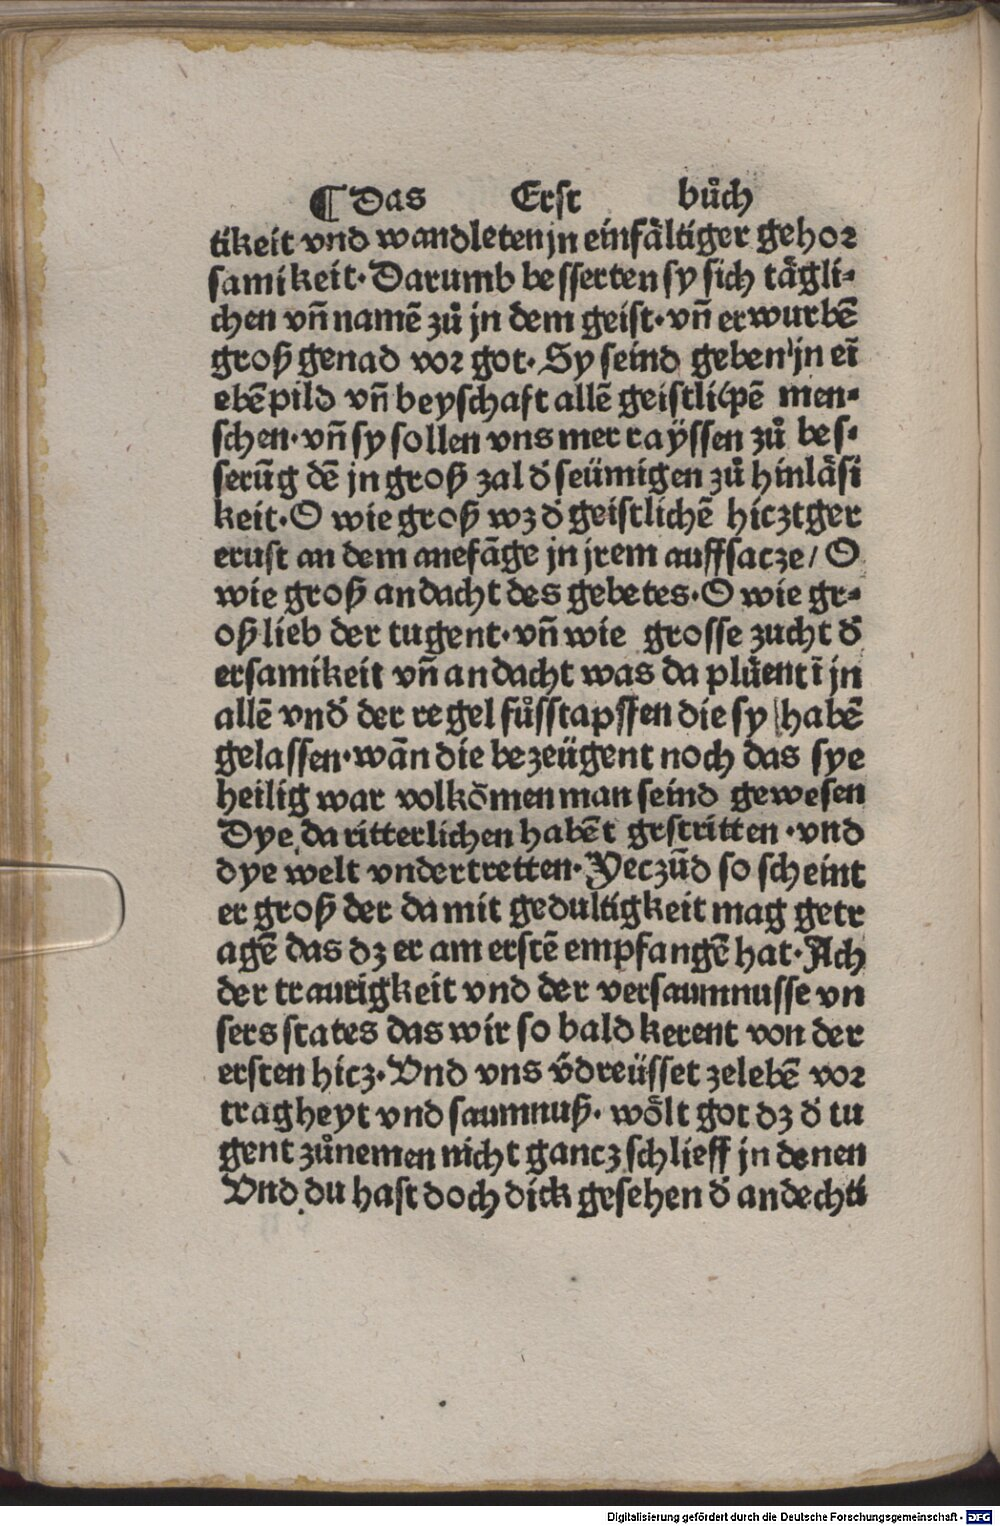 ¶ Das Erst bůch
tikeit vnd wandleten jn einfåltiger gehor
samikeit. Darumb besserten sy sich tågli-
chen vñ namē zů jn dem geist. vñ erwurbē
groß genad vor got. Sy seind geben jn eī
ebēpild vñ beyschaft allē geistlichē men-
schen. vñ sy sollen vns mer raÿssen zů bes-
serūg dē jn groß zal d̕ seümigen zů hinlåsi
keit. O wie groß wz d̕ geistlichē hicztger
erust an dem anefāge jn jrem auffsacze/ O
wie groß andacht des gebetes. O wie gr-
oß lieb der tugent. vñ wie grosse zucht d̕
ersamikeit vñ andacht was da plůent ī jn
allē vnd̕ der regel fůsstapffen die sy habē
gelassen. wān die bezeügent noch das sye
heilig war volkōmen man seind gewesen
Dye da ritterlichen habēt gestritten. vnd
dye welt vndertretten. Yeczūd so scheint
er groß der da mit gedultigkeit mag getr
agē das dz er am erstē empfangē hat. Ach
der traurigkeit vnd der versaumnusse vn
sers states das wir so bald kerent von der
ersten hicz. Vnd vns v̄dreüsset zelebē vor
tragheyt vnd saumnuß. wo̊lt got dz d̕ tu
gent zůnemen nicht gancz schlieff jn denen
Vnd du hast doch dick gesehen d̕ andechti
Digitalisierung gefördert durch die Deutsche Forschungsgemeinschaft - DFG